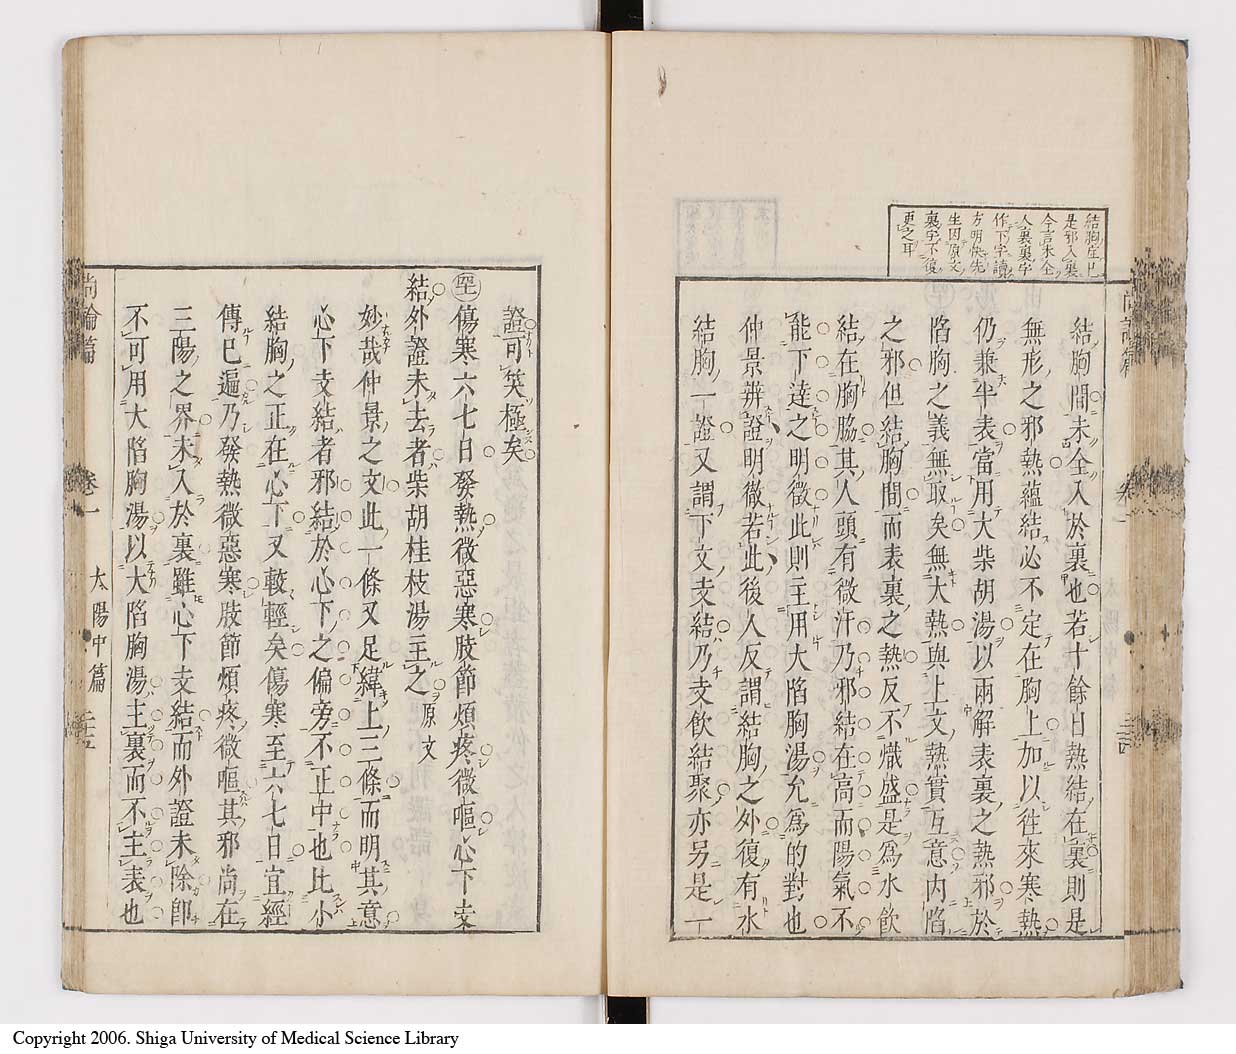 結胸症已
是邪入裏
今言未全
入裏裏字
作下字讀
方明快先
生因原文
裏字不復
更之耳
結胸間未全入於裏也若十餘日熱結在裏則是
無形之邪熱蘊結必不定在胸上加以徃來寒熱
仍兼半表當用大柴胡湯以兩解表裏之熱邪於
陷胸之義無取矣無大熱與上文熱實互意內陷
之邪但結胸間而表裏之熱反不熾盛是爲水飮
結在胸脇其人頭有微汗乃邪結在高而陽氣不
能下達之明徵此則主用大陷胸湯允爲的對也
仲景辨證明徹若此後人反謂結胸之外復有水
結胸一證又謂下文支結乃支飮結聚亦另是一
證可笑極矣
傷寒六七日發熱微惡寒肢節煩疼微嘔心下支
結外證未去者柴胡桂枝湯主之 原文
妙哉仲景之文此一條又足緯上三條而明其意
心下支結者邪結於心下之偏旁不正中也比小
結胸之正在心下又較輕矣傷寒至六七日宜經
傳已遍乃發熱微惡寒肢節煩疼微嘔其邪尚在
三陽之界未入於裏雖心下支結而外證未除卽
不可用大陷胸湯以大陷胸湯主裏而不主表也
尚論篇 卷一 太陽中篇
Copyright 2006. Shiga University of Medical Science Library